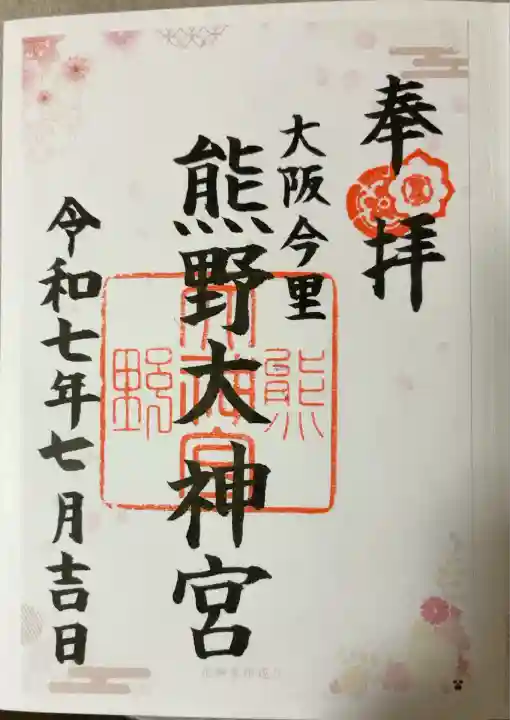 奉拝
大阪今里
熊野大神宮
令和七年七月吉日